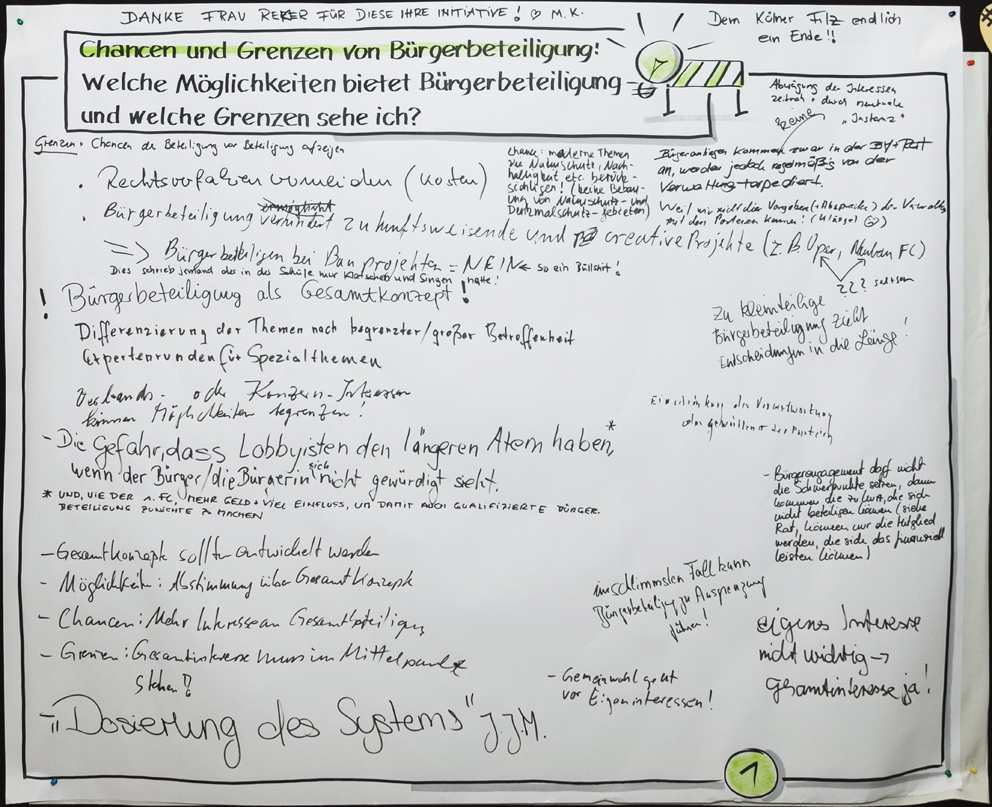 DANKE FRAU REKER FÜR DIESE IHRE INITIATIVE! ♡ M.K.
Dem Kölner Filz endlich
ein Ende!!
Chancen und Grenzen von Bürgerbeteiligung:
Welche Möglichkeiten bietet Bürgerbeteiligung
und welche Grenzen sehe ich?
Abwägung der Interessen
zeitnah + durch neutrale
"Instanz"
Grenzen: Chancen der Beteiligung vor Beteiligung aufzeigen
Chance: moderne Themen
wie Naturschutz, Nach-
haltigkeit etc. berück-
sichtigen! (keine Bebau-
ung von Naturschutz- und
Denkmalschutz-gebieten)
Bürgeranliegen kommen zwar in der BV + Rat
an, werden jedoch regelmäßig von der
Verwaltung torpediert.
Weil wir nicht die Vorgaben (+ Absprache) der Verwaltg
mit den Parteien kennen! (Klüngel ☹)
• Rechtsverfahren vermeiden (Kosten)
• Bürgerbeteiligung verhindert zukunftsweisende und creative Projekte (z.B. Oper, Neubau FC)
=> Bürger beteiligen bei Bauprojekten = NEIN ← so ein Bullshit!
Dies schrieb jemand der in der Schule nur Klatschen und Singen hatte!
??? seltsam
! Bürgerbeteiligung als Gesamtkonzept!
Differenzierung der Themen nach begrenzter/großer Betroffenheit
Expertenrunden für Spezialthemen
Zu kleinteilige
Bürgerbeteiligung zieht
Entscheidungen in die Länge!
Verbands- oder Konzern-Interessen
können Möglichkeiten begrenzen!
Einschränkung der Verantwortung
der gewählten Parteien
- Die Gefahr, dass Lobbyisten den längeren Atem haben,*
wenn der Bürger/die Bürgerin sich nicht gewürdigt sieht.
* UND, WIE DER 1. FC, MEHR GELD + VIEL EINFLUSS, UM DAMIT AUCH QUALIFIZIERTE BÜRGER-
BETEILIGUNG ZUNICHTE ZU MACHEN
- Bürgerengagement darf nicht
die Schwerpunkte setzen, dann
kommen die zu kurz, die sich
nicht beteiligen können (siehe
Rat, können nur die Mitglied
werden, die sich das finanziell
leisten können)
- Gesamtkonzepte sollten entwickelt werden
- Möglichkeiten: Abstimmung über Gesamtkonzepte
- Chancen: Mehr Interesse an Gesamtbeteiligung
- Grenzen: Gesamtinteresse muss im Mittelpunkt
stehen!!
im schlimmsten Fall kann
Bürgerbeteiligung zu Ausgrenzung
führen!
eigenes Interesse
nicht wichtig →
Gesamtinteresse ja!
- Gemeinwohl geht
vor Eigeninteressen!
- "Dosierung des Systems" J.J.M.
1